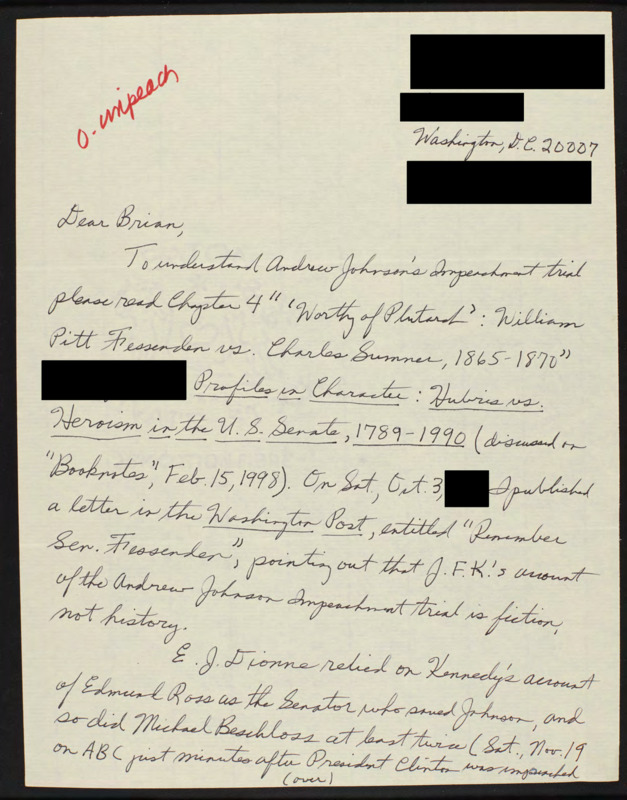 O-impeach
Washington, D.C. 20007
Dear Brian,
To understand Andrew Johnson's Impeachment trial
please read Chapter 4 " 'Worthy of Plutarch': William
Pitt Fessenden vs. Charles Sumner, 1865-1870"
Profiles in Character: Hubris vs.
Heroism in the U.S. Senate, 1789-1990 (discussed on
"Booknotes", Feb. 15, 1998). On Sat., Oct. 3, I published
a letter in the Washington Post, entitled "Remember
Sen. Fessenden", pointing out that J.F.K.'s account
of the Andrew Johnson Impeachment trial is fiction,
not history.
E. J. Dionne relied on Kennedy's account
of Edmund Ross as the Senator who saved Johnson, and
so did Michael Beschloss at least twice (Sat., Nov. 19
on ABC just minutes after President Clinton was impeached
(over)